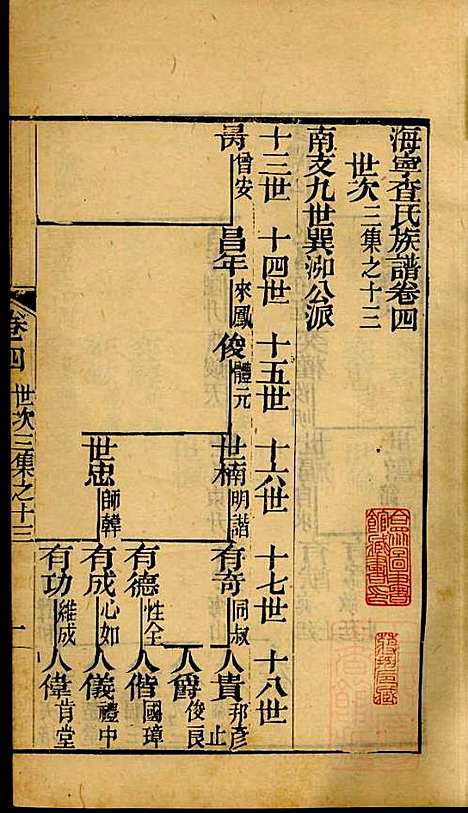 海寧查氏族譜卷四
世次三集之十三
南支九世巽泖公派
十三世 十四世 十五世 十六世 十七世 十八世
昺曾安 昌年來鳳 俊體元 世楠明諧 有奇同叔 人貴邦彥 止
人爵俊良
有德性全 人偕國璋
世忠師韓 有成心如 人儀禮中
有功維成 人偉肯堂
卷四 世次三集之十三 一